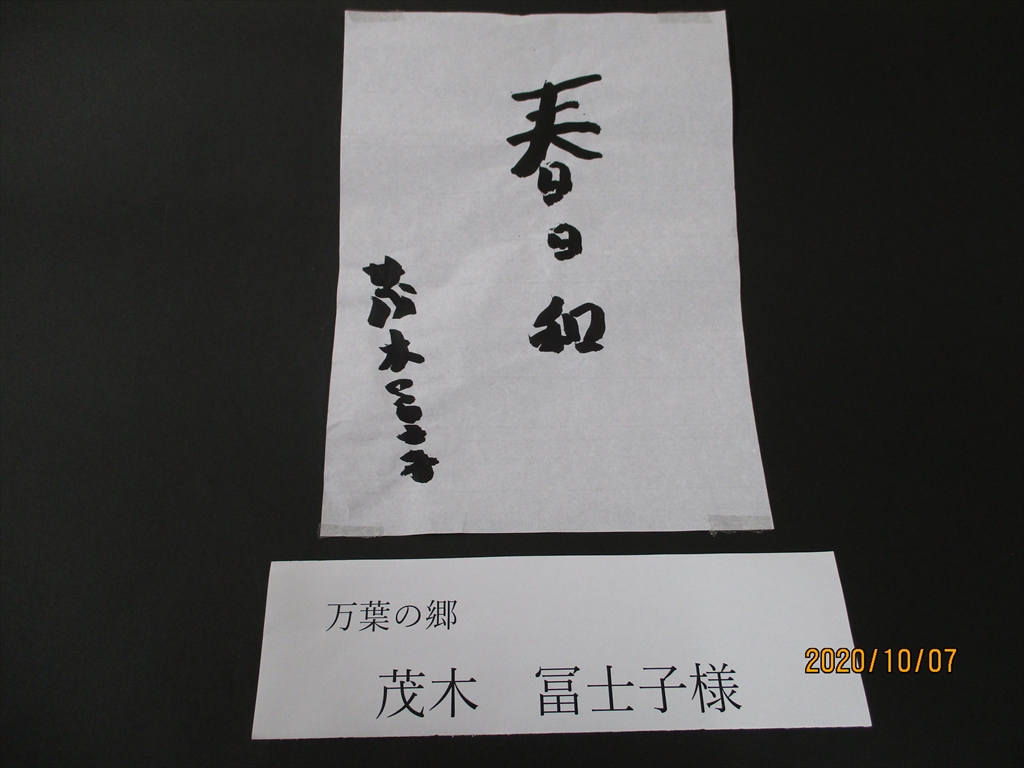 春日和
茂木冨士子
万葉の郷
茂木　冨士子様
2020/10/07